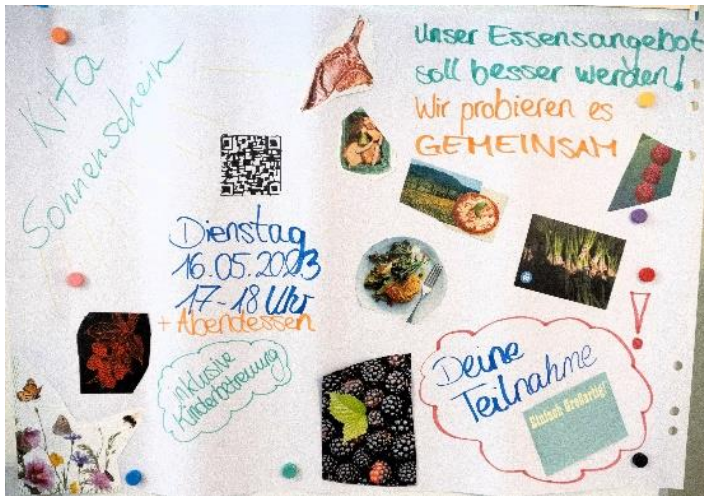 Kita
Sonnenschein
Unser Essensangebot
soll besser werden!
Wir probieren es
GEMEINSAM
Dienstag
16.05.2023
17-18 Uhr
+ Abendessen
inklusive
Kinderbetreuung
!
Deine
Teilnahme
Einfach Großartig!